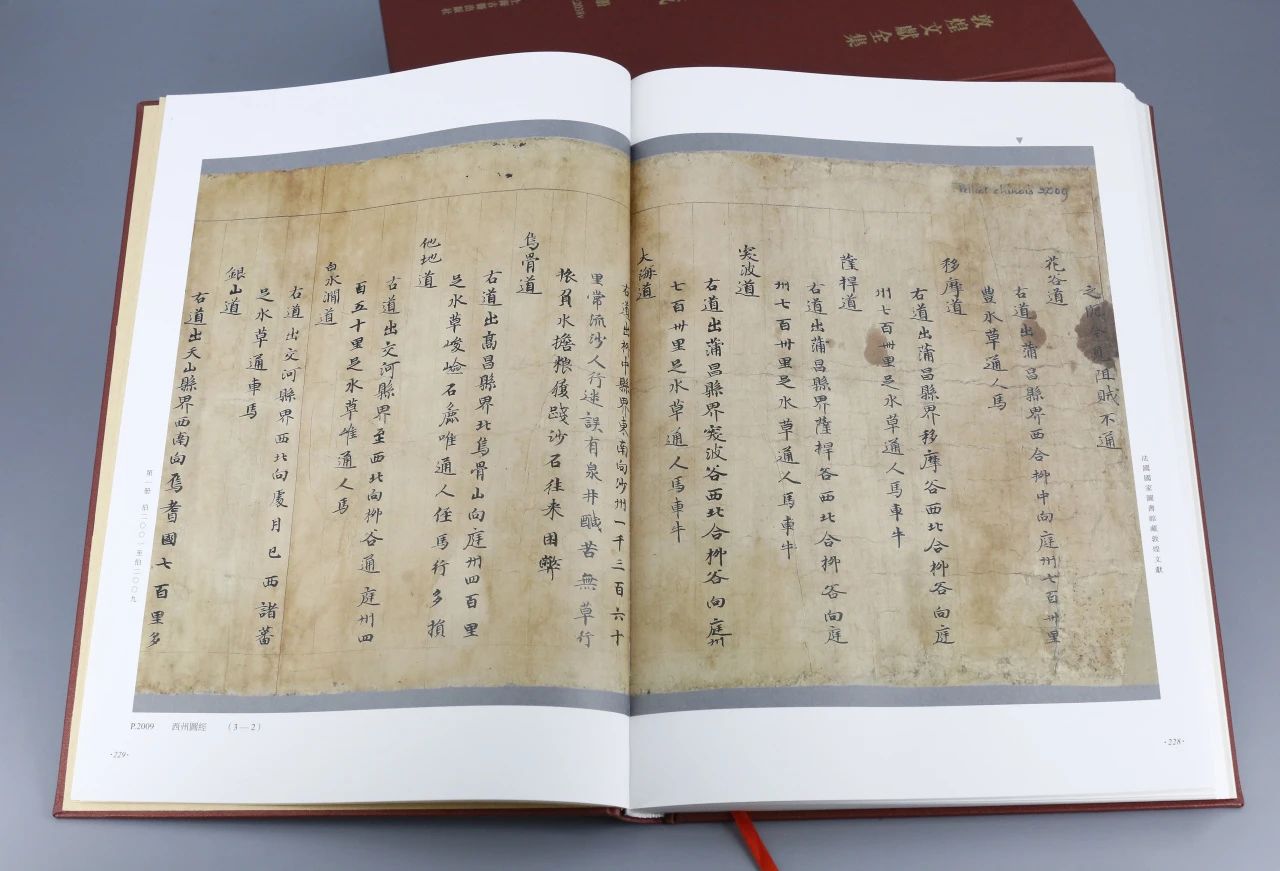 敦煌文獻全集
上海古籍出版社
Pelliot chinois 2009
阻賊不通
花谷道
右道出蒲昌縣界西合柳中向庭州七百卅里
豐水草通人馬
移摩道
右道出蒲昌縣界移摩谷西北合柳谷向庭
州七百卅里足水草通人馬車牛
薩捍道
右道出蒲昌縣界薩捍谷西北合柳谷向庭
州七百卅里足水草通人馬車牛
突波道
右道出蒲昌縣界突波谷西北合柳谷向庭州
七百卅里足水草通人馬車牛
大海道
右道出柳中縣界東南向沙州一千三百六十
里常流沙人行迷誤有泉井鹹苦無草行
旅負水擔粮履踐沙石往來困弊
烏骨道
右道出高昌縣界北烏骨山向庭州四百里
足水草峻嶮石麁唯通人徑馬行多損
他地道
右道出交河縣界至西北向柳谷通庭州四
百五十里足水草唯通人馬
白水澗道
右道出交河縣界西北向處月巳西諸蕃
足水草通車馬
銀山道
右道出天山縣界西南向焉耆國七百里多
法國國家圖書館藏敦煌文獻
·228·
第一册 伯二〇〇一至伯二〇〇九
P.2009 西州圖經 （3—2）
·229·